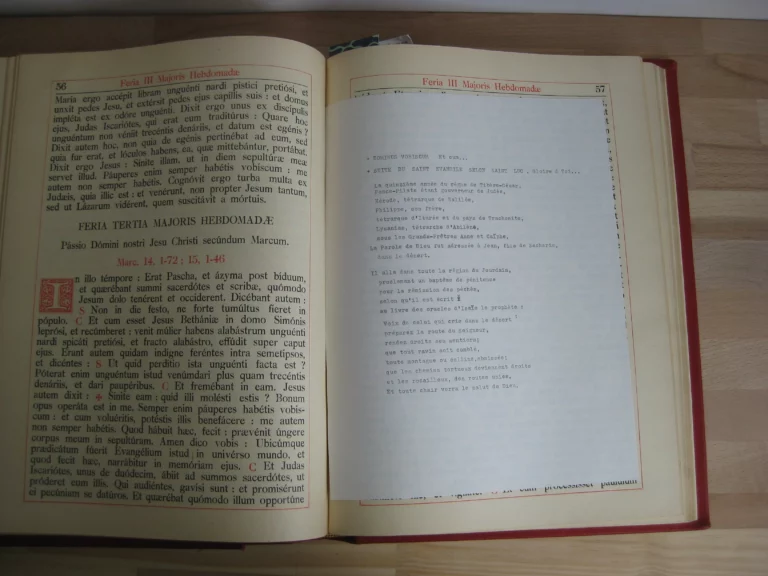 56
Feria III Majoris Hebdomadæ
Maria ergo accépit libram unguénti nardi pístici pretiósi, et
unxit pedes Jesu, et extérsit pedes ejus capíllis suis : et domus
impléta est ex odóre unguénti. Dixit ergo unus ex discípulis
ejus, Judas Iscariótes, qui erat eum traditúrus : Quare hoc
unguéntum non véniit trecéntis denáriis, et datum est egénis ?
Dixit autem hoc, non quia de egénis pertinébat ad eum, sed
quia fur erat, et lóculos habens, ea, quæ mittebántur, portábat.
Dixit ergo Jesus : Sínite illam, ut in diem sepultúræ meæ
servet illud. Páuperes enim semper habétis vobíscum : me
autem non semper habétis. Cognóvit ergo turba multa ex
Judæis, quia illic est : et venérunt, non propter Jesum tantum,
sed ut Lázarum vidérent, quem suscitávit a mórtuis.
FERIA TERTIA MAJORIS HEBDOMADÆ
Pássio Dómini nostri Jesu Christi secúndum Marcum.
Marc. 14, 1-72 ; 15, 1-46
In illo témpore : Erat Pascha, et ázyma post bíduum,
et quærébant summi sacerdótes et scribæ, quómodo
Jesum dolo tenérent et occíderent. Dicébant autem :
S Non in die festo, ne forte tumúltus fíeret in
pópulo. C Et cum esset Jesus Bethániæ in domo Simónis
leprósi, et recúmberet : venit múlier habens alabástrum unguénti
nardi spicáti pretiósi, et fracto alabástro, effúdit super caput
ejus. Erant autem quidam indígne feréntes intra semetípsos,
et dicéntes : S Ut quid perdítio ista unguénti facta est ?
Póterat enim unguéntum istud venúmdari plus quam trecéntis
denáriis, et dari paupéribus. C Et fremébant in eam. Jesus
autem dixit : ✠ Sínite eam : quid illi molésti estis ? Bonum
opus operáta est in me. Semper enim páuperes habétis vobís-
cum : et cum voluéritis, potéstis illis benefácere : me autem
non semper habétis. Quod hábuit hæc, fecit : prævénit úngere
corpus meum in sepultúram. Amen dico vobis : Ubicúmque
prædicátum fúerit Evangélium istud in univérso mundo, et
quod fecit hæc, narrábitur in memóriam ejus. C Et Judas
Iscariótes, unus de duódecim, ábiit ad summos sacerdótes, ut
próderet eum illis. Qui audiéntes, gavísi sunt : et promisérunt
ei pecúniam se datúros. Et quærébat quómodo illum opportúne
Feria III Majoris Hebdomadæ
57
SUITE DU SAINT EVANGILE SELON SAINT LUC.
La quinzième année du règne de Tibère-César,
Ponce-Pilate étant gouverneur de Judée,
Hérode, tétrarque de Galilée,
Philippe, son frère,
tétrarque d'Iturée et du pays de
tétrarque d'Abilène,
sous les Grands-Prêtres Anne et Caïphe,
La Parole de Dieu fut adressée à Jean, fils de Zacharie,
dans le désert.
Il alla dans toute la région du Jourdain,
proclamant un baptême de pénitence
pour la rémission des péchés,
selon qu'il est écrit
au livre des oracles d'Isaïe le prophète :
Voix de celui qui crie dans le désert
préparez la route du Seigneur,
rendez droits ses sentiers;
que tout ravin soit comblé,
toute montagne ou colline, abaissée;
que les chemins tortueux deviennent droits
Et toute chair verra le salut de Dieu.
cum processísset